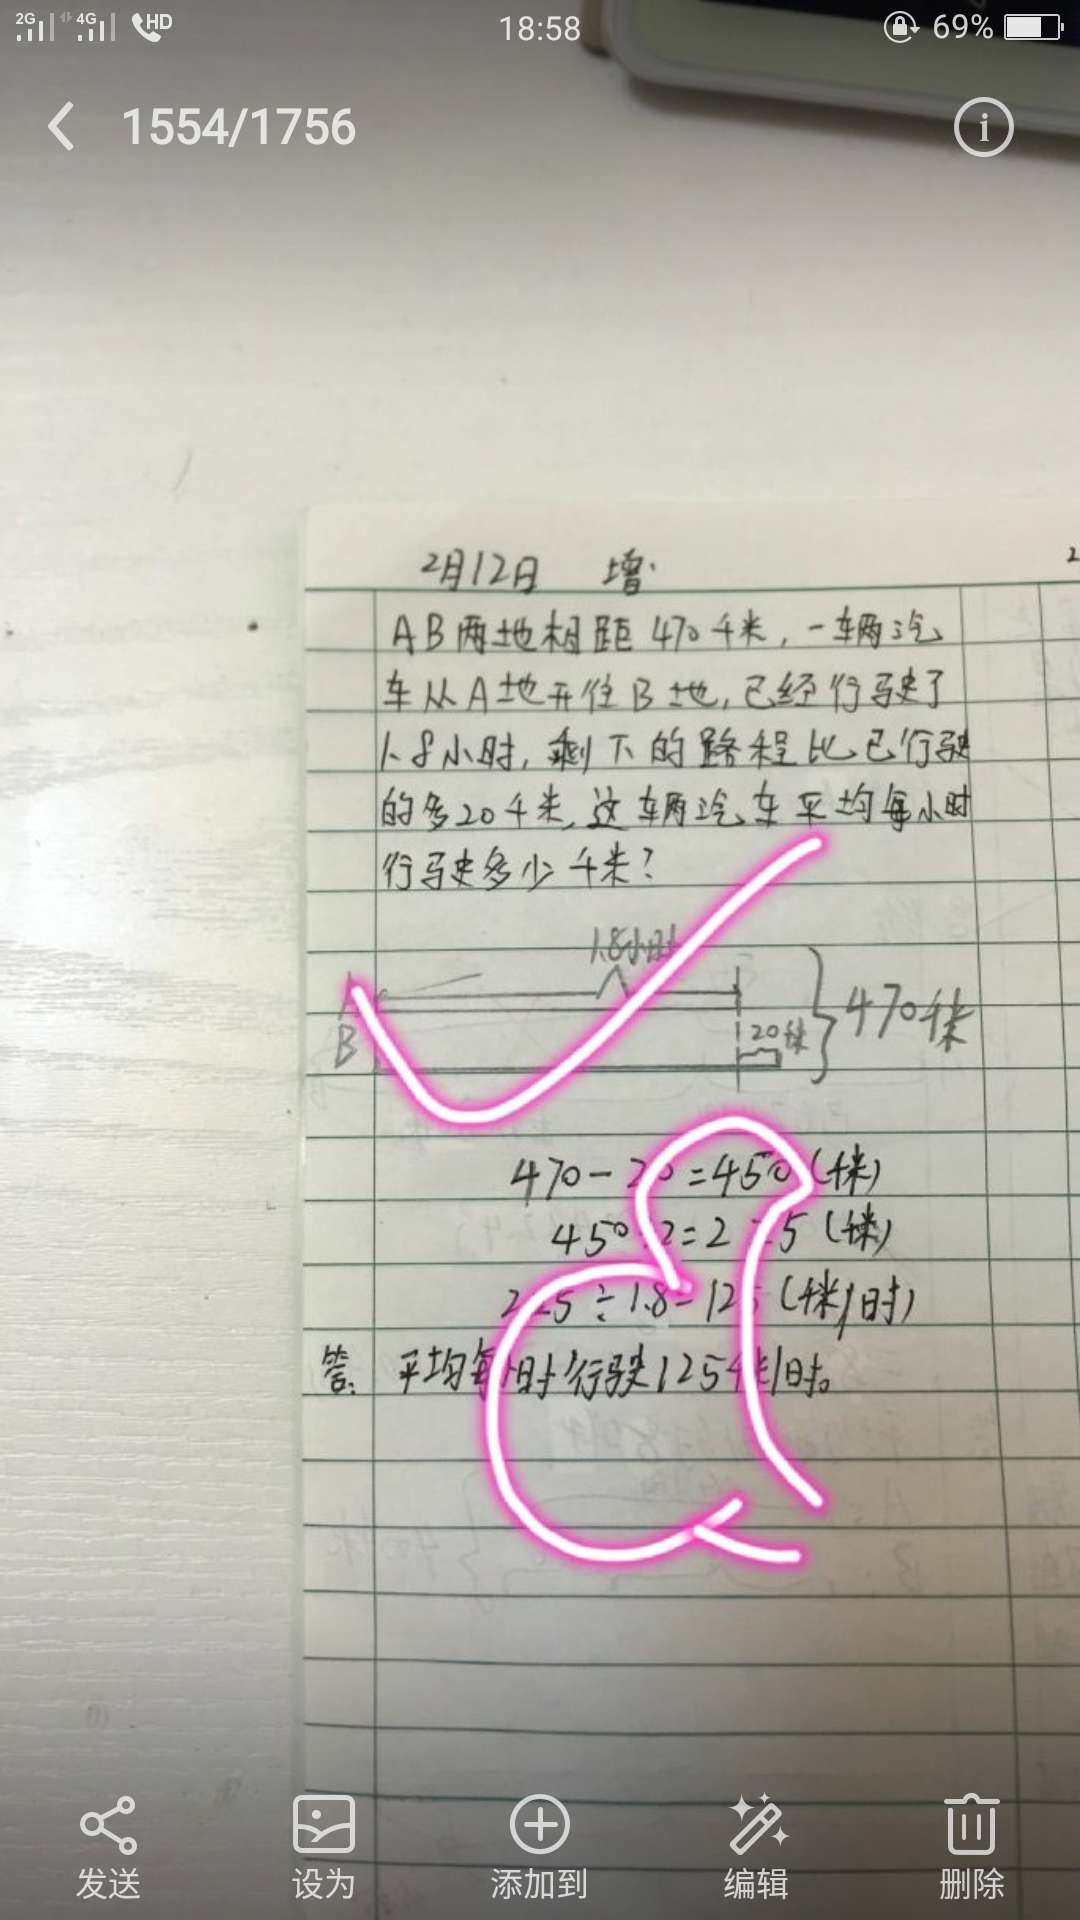 2G 4G HD 18:58 69%
1554/1756
2月12日 增
AB两地相距470千米,一辆汽
车从A地开往B地,已经行驶了
1.8小时,剩下的路程比已行驶
的多20千米,这辆汽车平均每小时
行驶多少千米?
1.8小时
A
B
20千米
470千米
470-20=450(千米)
450÷2=225(千米)
225÷1.8=125(千米/时)
答:平均每时行驶125千米/时。
发送 设为 添加到 编辑 删除